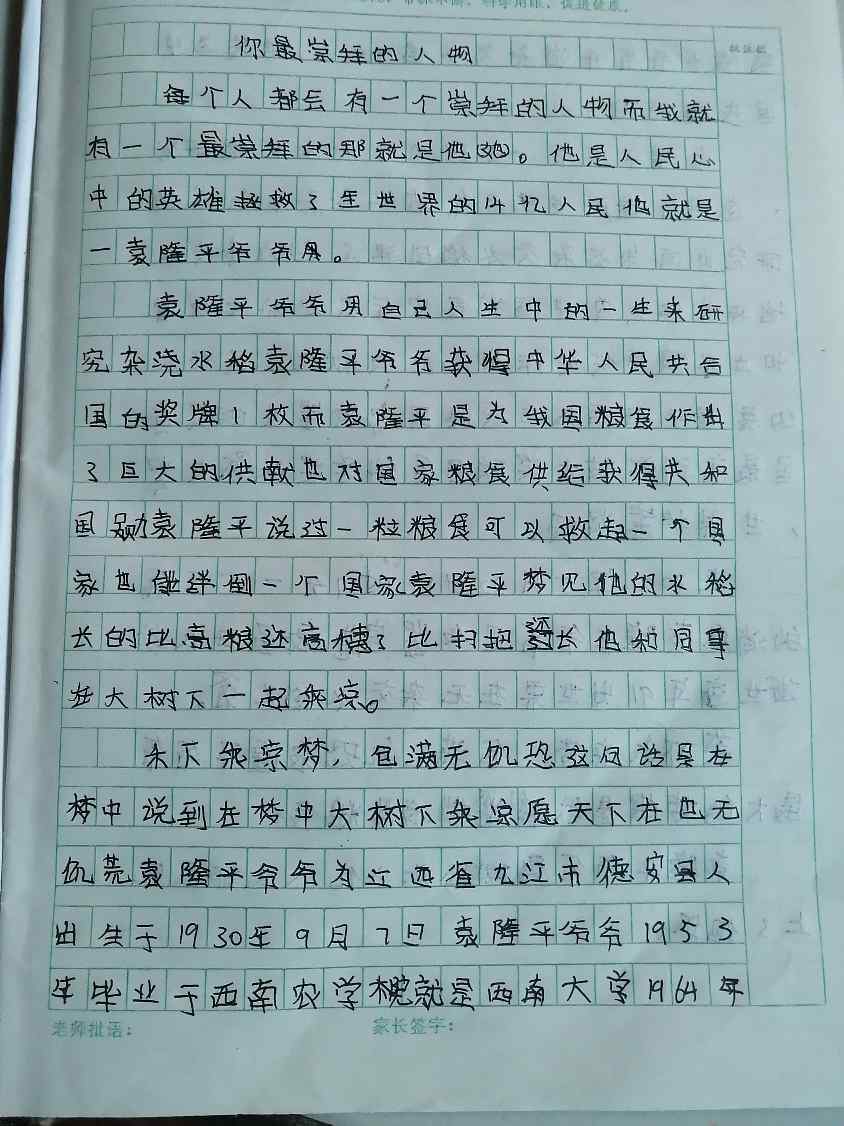 你最崇拜的人物
每个人都会有一个崇拜的人物而我就
有一个最崇拜的那就是他(她)。他是人民心
中的英雄拯救了全世界的14亿人民他就是
一袁隆平爷爷
袁隆平爷爷用自己人生中的一生来研
究杂浇水稻袁隆平爷爷获得中华人民共合
国的奖牌1枚而袁隆平是为我国粮食作出
了巨大的供献也对国家粮食供给获得共和
国勋袁隆平说过一粒粮食可以救起一个国
家也 绊倒一个国家袁隆平梦见他的水稻
长的比高粮还高穗了比扫把还长他和同事
在大树下一起乘凉。
禾下乘凉梦,包满无饥恐这句话是在
梦中说到在梦中大树下乘凉愿天下在也无
饥荒袁隆平爷爷为江西省九江市德安县人
出生于1930年9月7日袁隆平爷爷1953
年毕业于西南农学 就是西南大学1964年
老师批语:
家长签字: